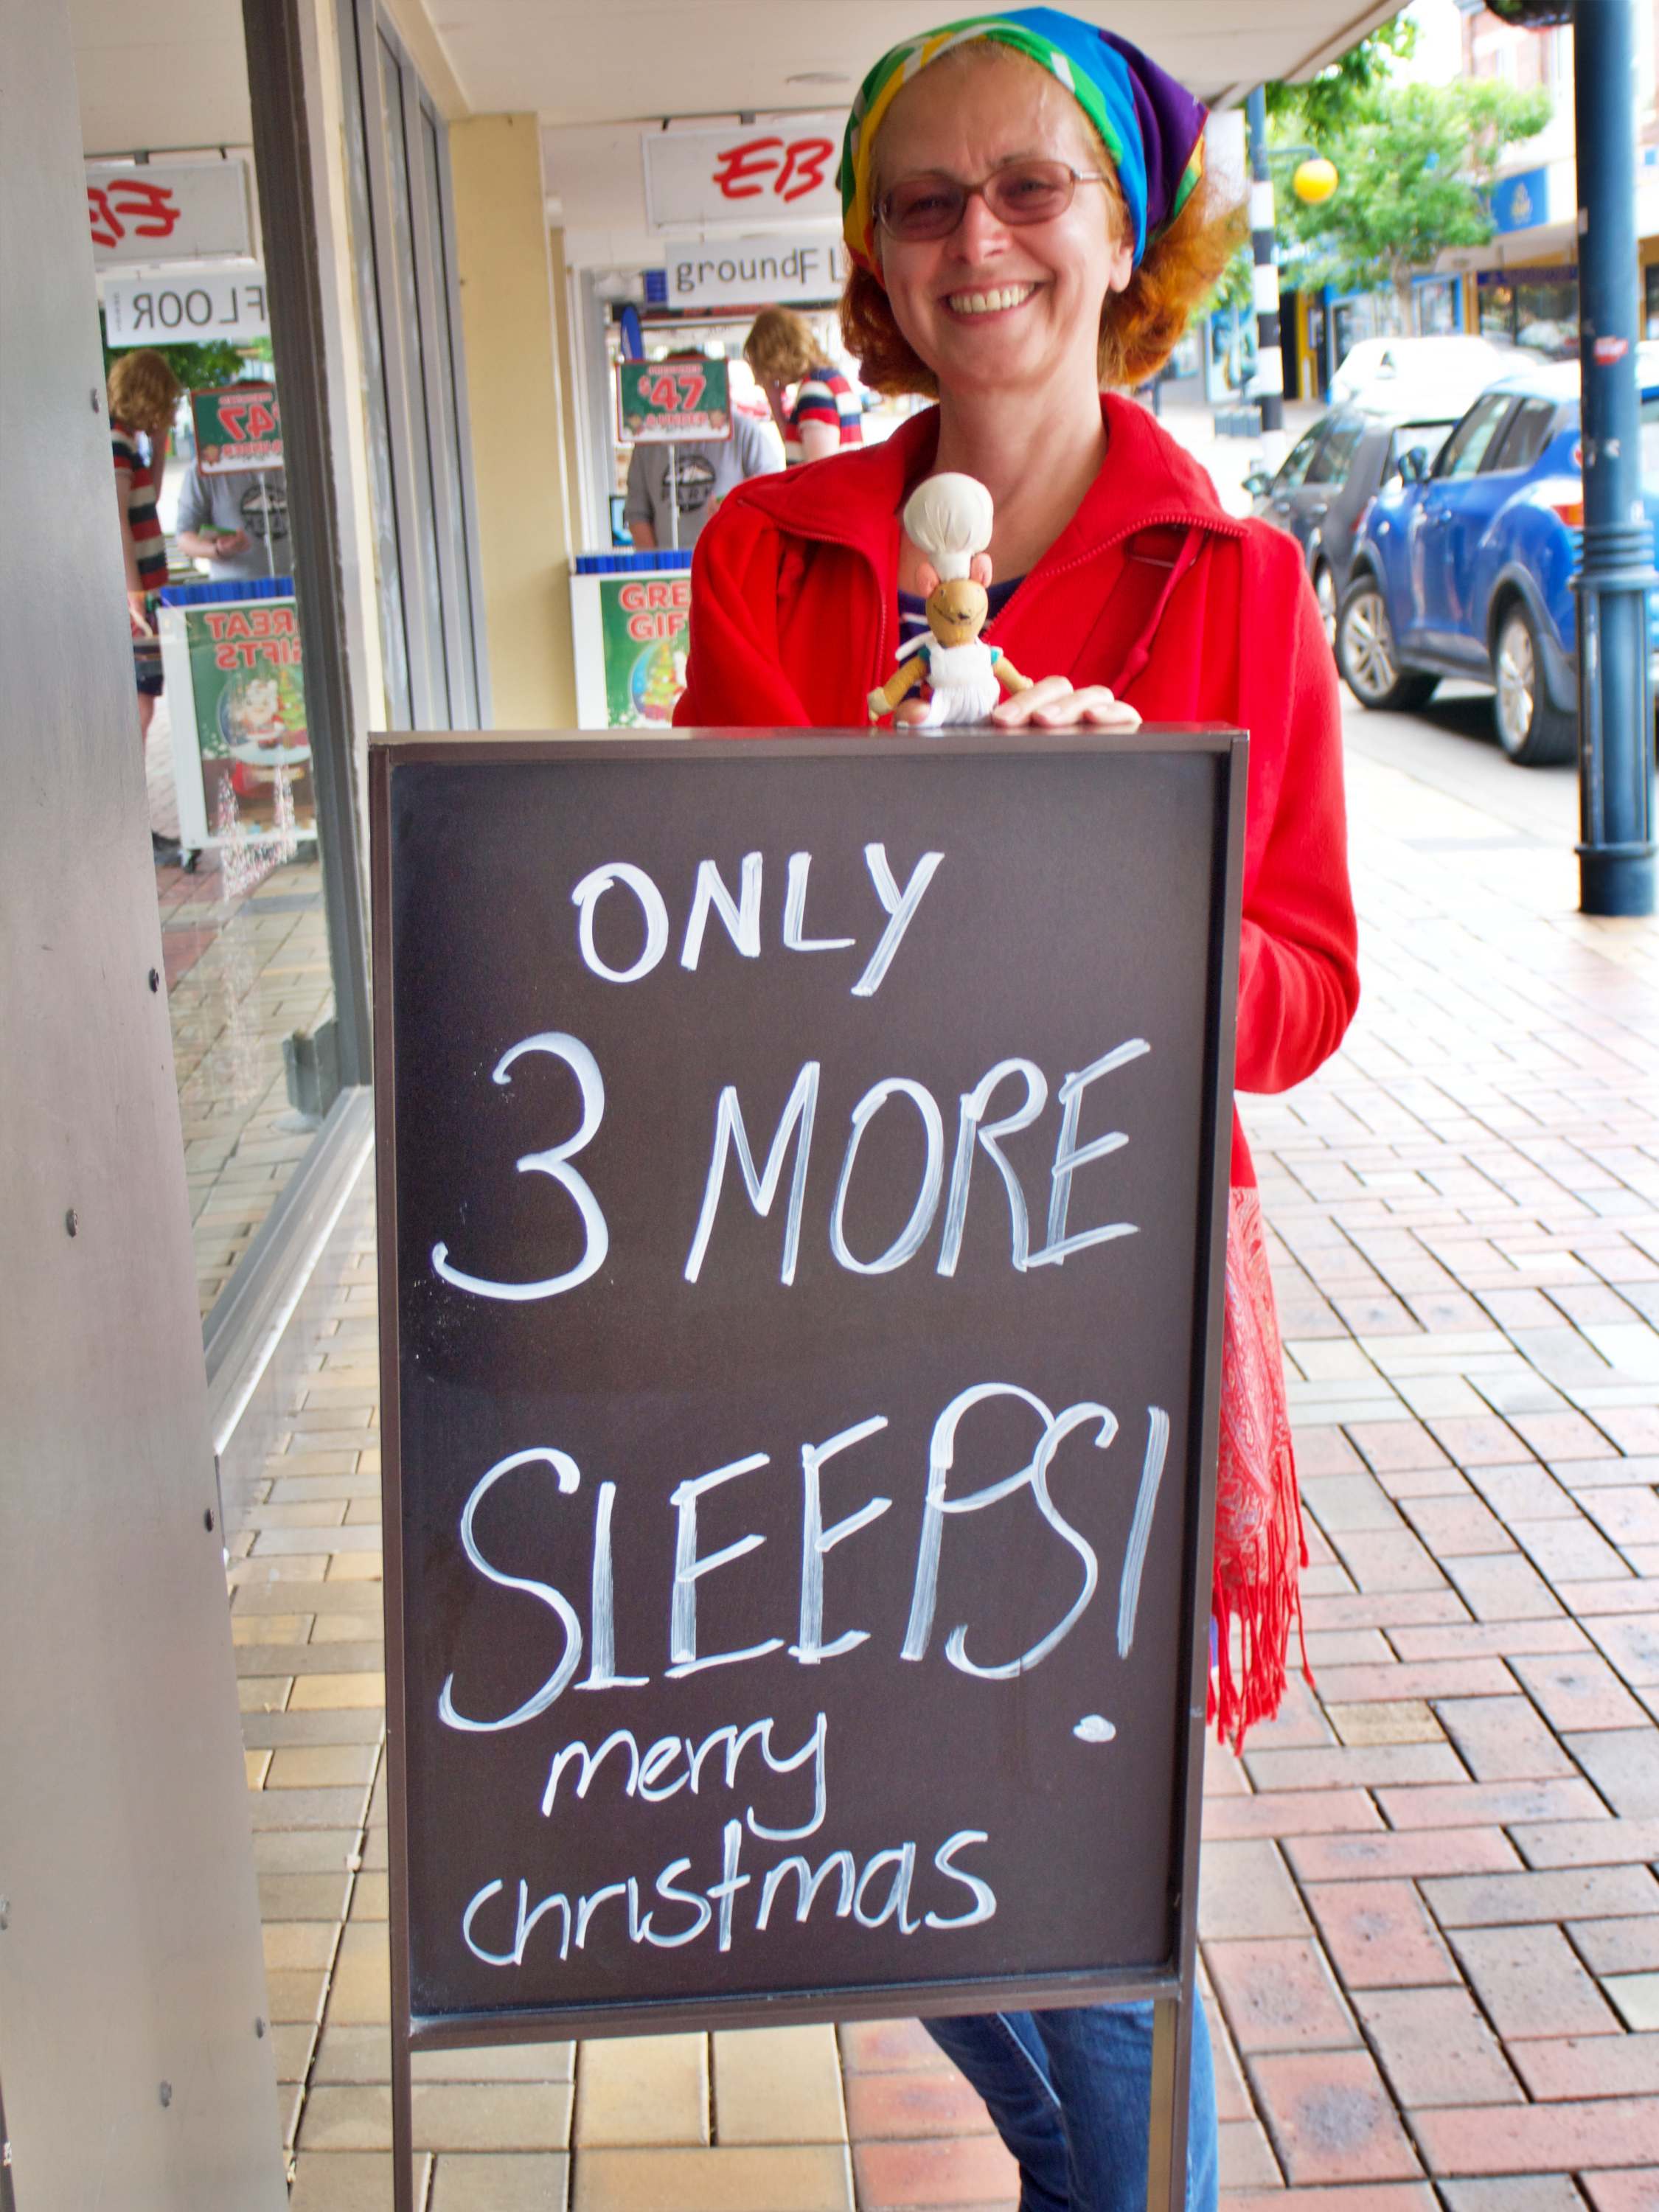 EB
groundFL
FLOOR
$47
GREAT
GIFTS
ONLY
3 MORE
SLEEPS!
merry
christmas